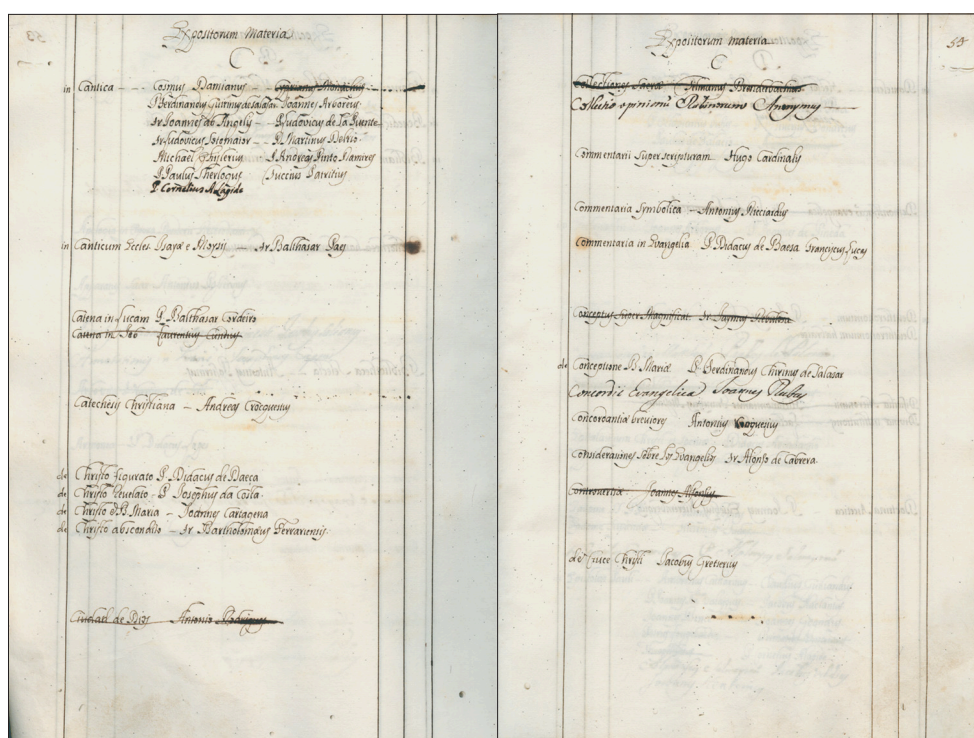 Expositorum Materia
C
in Cantica Cosmus Damianus - Cyprianus Monachus
P. Ferdinandus Quirinus de Salazar Joannes Arboreus
fr Joannes ab Angelis P. Ludovicus de la Puente
fr Ludovicus Sotomaior P. Martinus Delrio
Michael Ghislerius P. Andreas Pinto Ramires
P. Paulus Sherlogus Luccius Patritius
P. Cornelius A Lapide
in Canticum Eccles. Isayæ e Moysis fr Balthasar Paes
Catena in Lucam P. Balthasar Cordeiro
Catena in Job Laurentius Cundius
Catechesis Christiana - Andreas Crocquetius
de Christo figurato P. Didacus de Baeca
de Christo Revelato - P. Josephus da Costa
de Christo & B. Maria - Joannes Cartagena
de Christo abscondito - fr Bartholomæus Ferrariensis
Ciudad de Dios Antonio Rodrigues
Expositorum materia
C
54
Collectiones Sacræ Tilmanus Bredenbachius
Collectio opinionũ Rabinorum Anonymus
Commentarii Super scripturam Hugo Cardinalis
Commentaria Symbolica - Antonius Ricciardus
Commentaria in Evangelia P. Didacus de Baesa Franciscus Lucas
Conceptus super Magnificat fr Jaymus Rebullosa
de Conceptione B. Mariæ P. Ferdinandus Chirinus de Salazar
Concordie Evangelica Joannes Rubus
Concordantiæ breviores Antonius
Consideraciones sobre los Evangelios fr Alonso de Cabrera
Controversia Joannes Alfonsus
de Cruce Christi Jacobus Gretserius